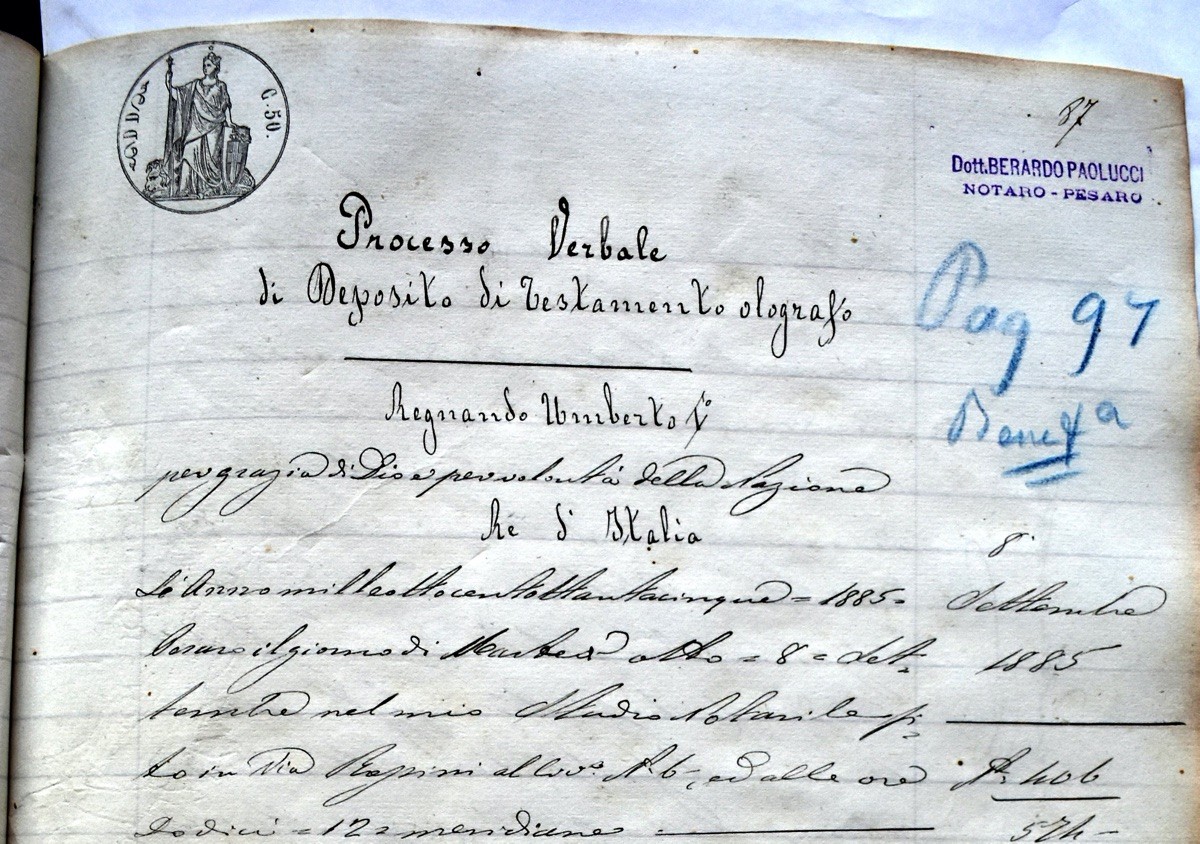 C. 50.
87
Dott. BERARDO PAOLUCCI
NOTARO - PESARO
Processo Verbale
di Deposito di Testamento olografo
Pag 97
Regnando Umberto I°
per grazia di Dio e per volontà della Nazione
Re d'Italia
8
L'Anno milleottocentottantacinque = 1885 =
Settembre
Pesaro il giorno di Martedì otto = 8 = Set-
1885
tembre nel mio Studio Notarile si-
to in Via al N. 6, ed alle ore
N. 406
dodici = 12 = meridiane
574